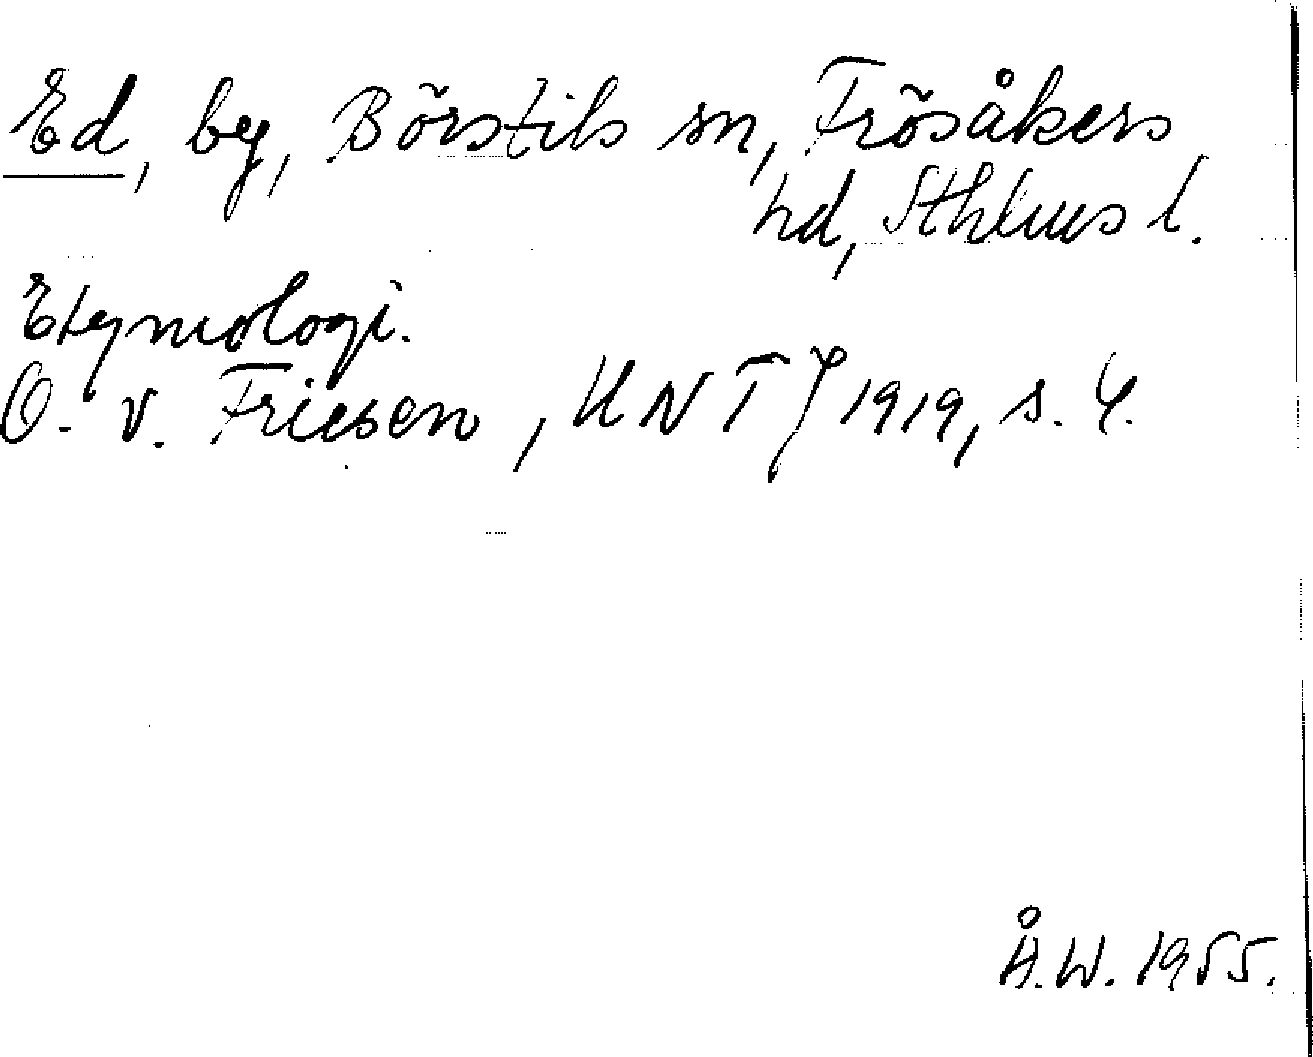 Ed, by, Börstils sn, Frösåkers
hd, Sthlms l.
Etymologi.
O. v. Friesen, UNT J 1919, s. 4.
Å.W. 1955.